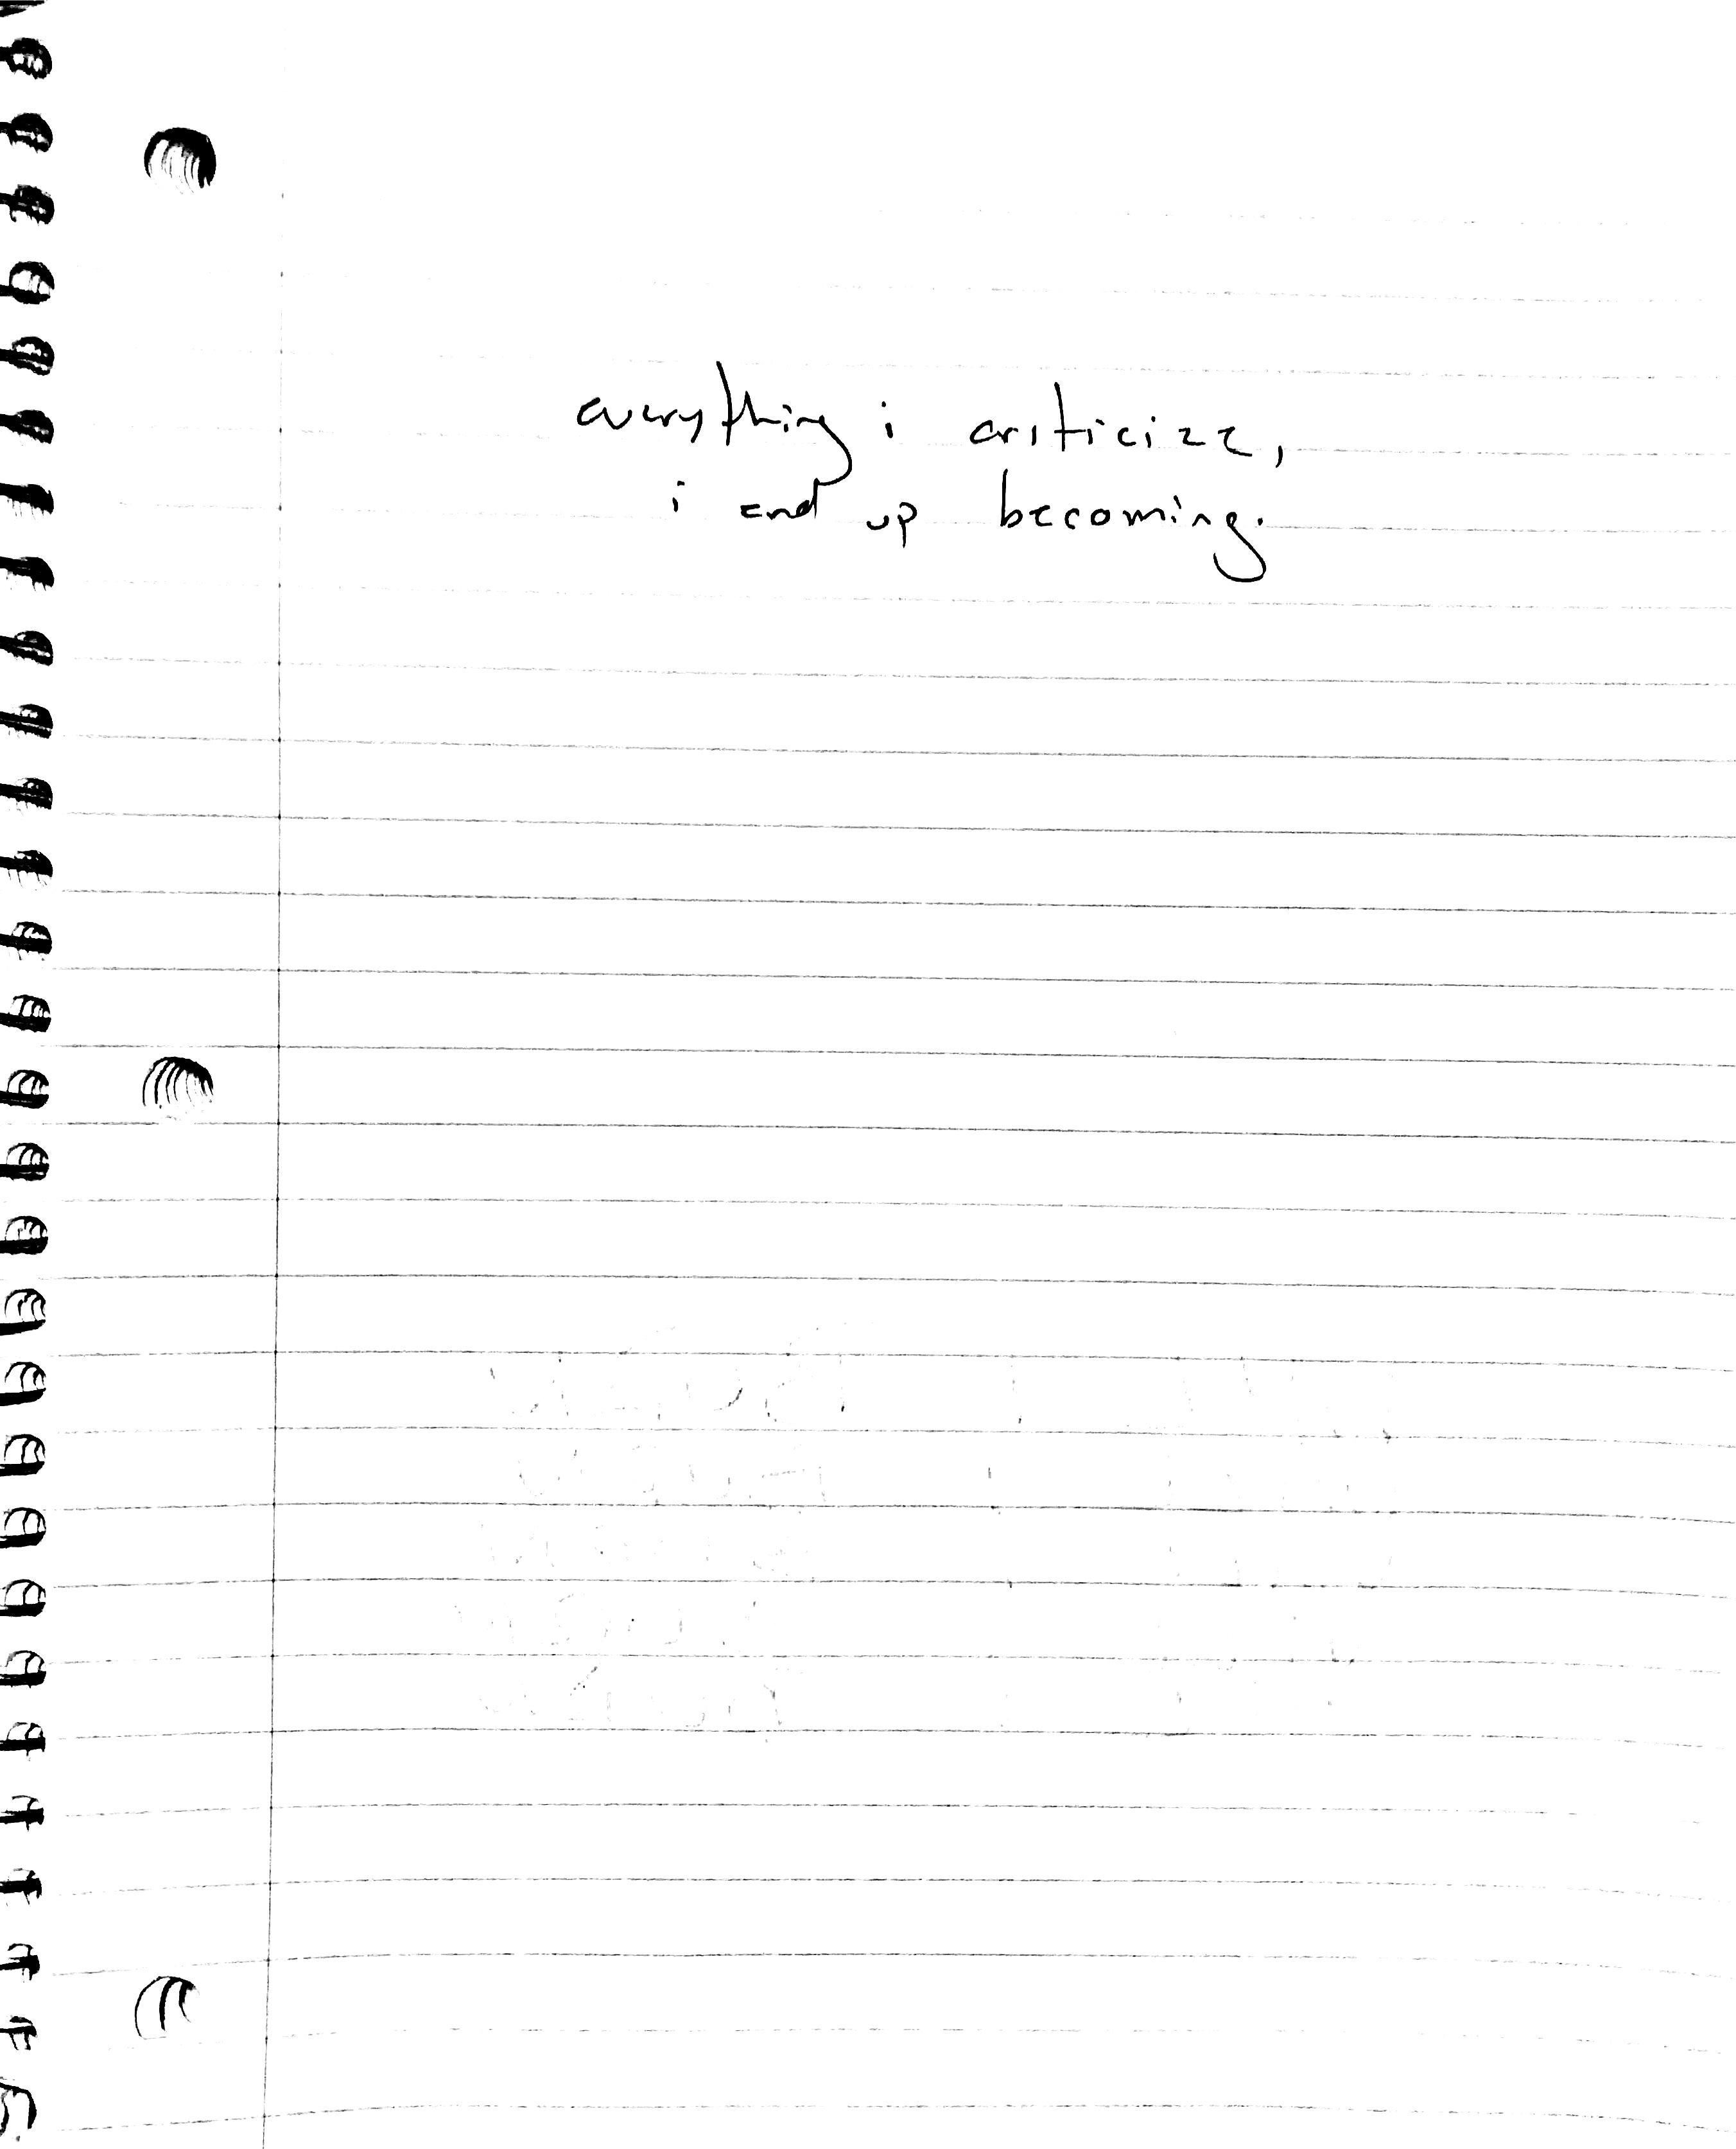 everything i criticize,
i end up becoming.